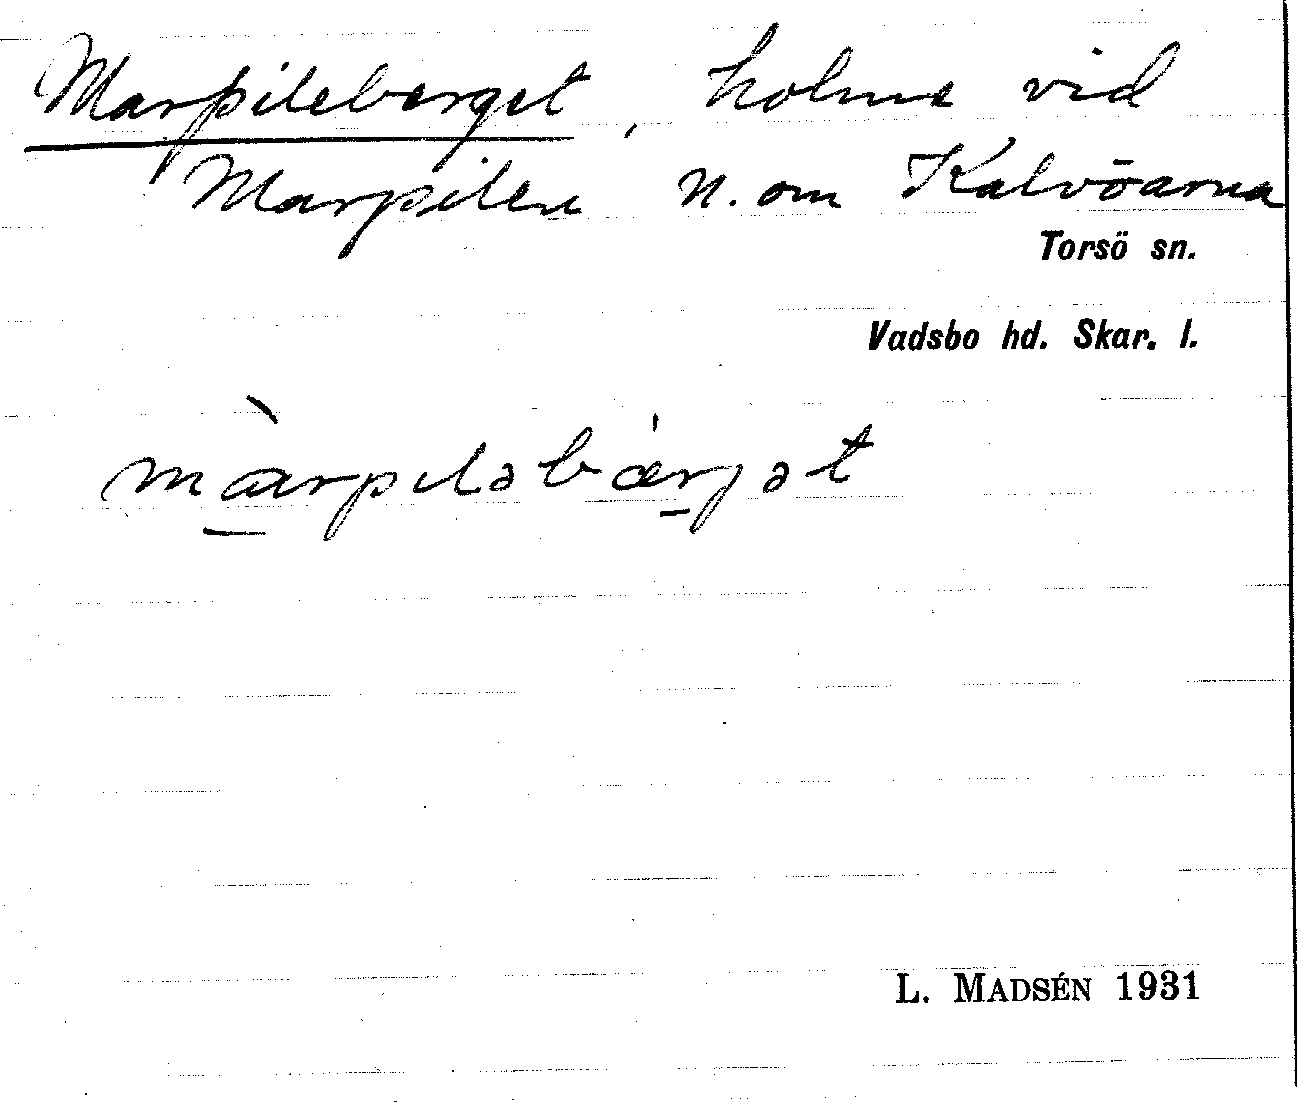 Marpileberget, holme vid
Marpilen N. om Kalvöarna
Torsö sn.
Vadsbo hd. Skar. l.
màrpıləbærjət
L. MADSÉN 1931